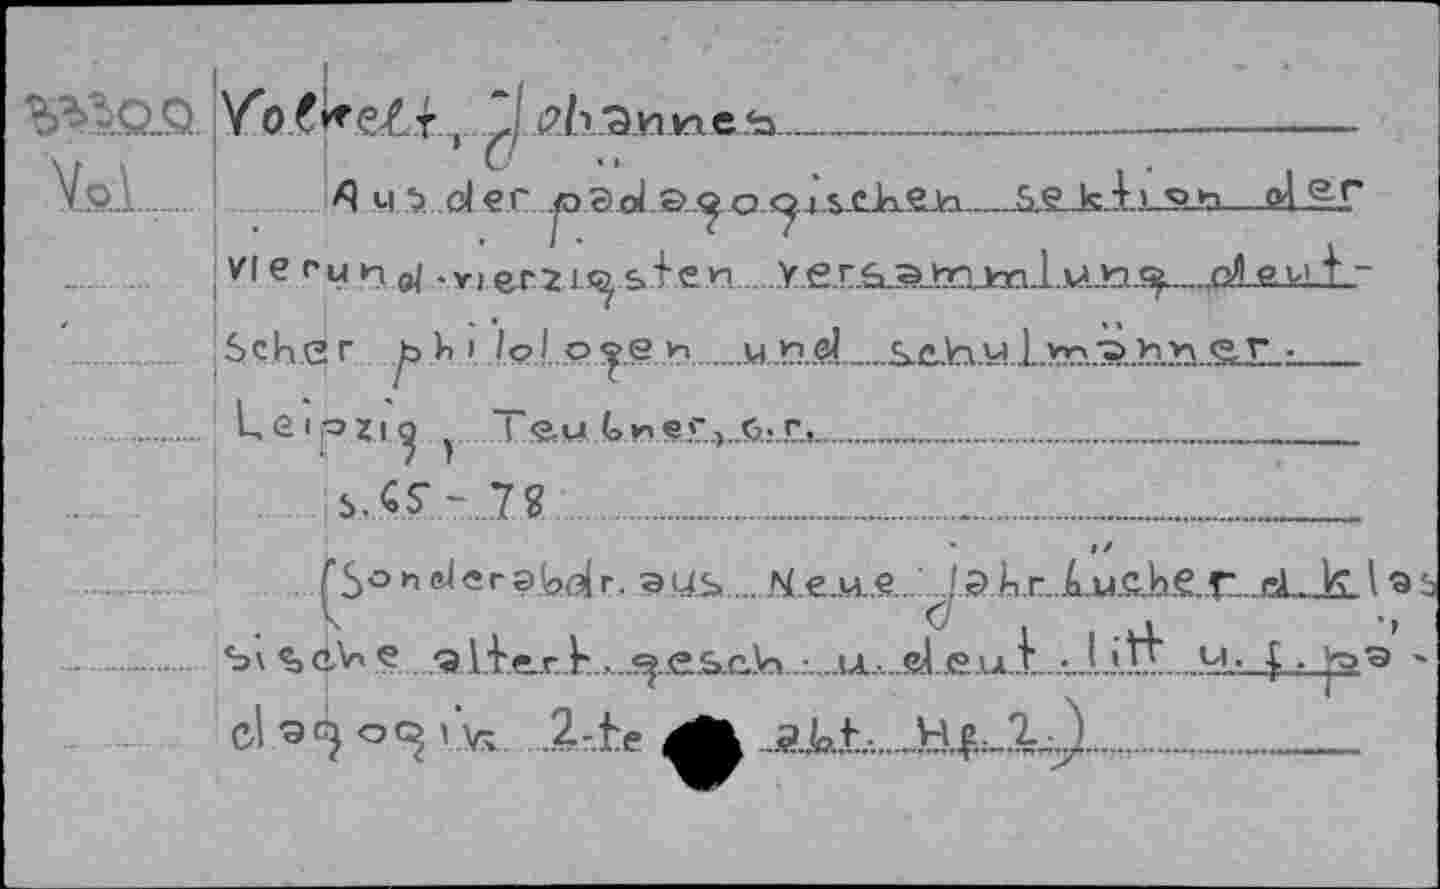 Volkelt, Johannes
Vol
Aus der pädagogischen sektion der
vierund-vierzigsten versammlung deut-
scher philologen und schulmänner.
Leipzig, Teubner, o.r.
s. 65-78
(Sonderabdr. aus Neue Jahrbücher d. klas
sische altert., gesch. u. deut. litt u. f. pä-
dagogik 2-te abt. Hf. 2.)